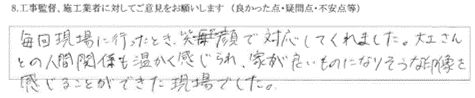 8.工事監督、施工業者に対してご意見をお願いします（良かった点・疑問点・不安点等）
毎回現場に行ったとき、笑顔で対応してくれました。大工さん
との人間関係も温かく感じられ、家が良いものになりそうな印象を
感じることができた現場でした。